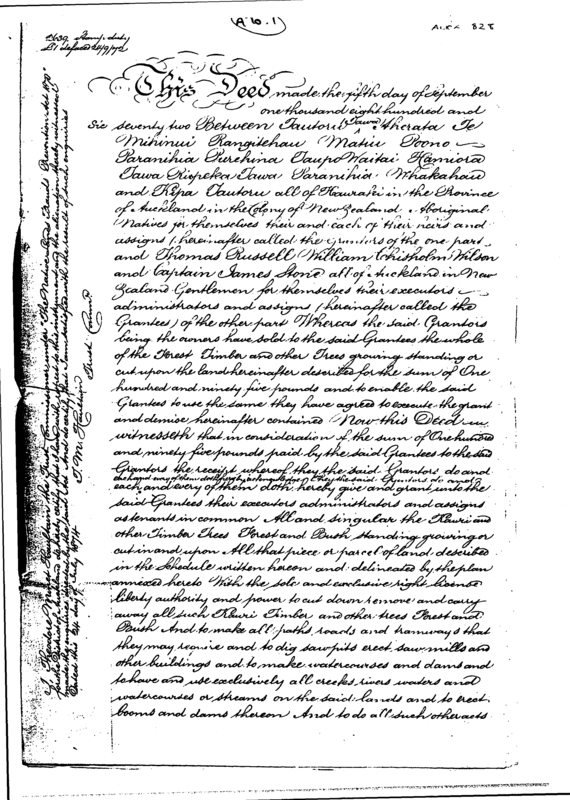 (A. 10. 1)
828
£639 Stamp duty
This Deed made the fifth day of September
one thousand eight hundred and
Sic seventy two Between Tautoru Tawa
Mihinui Rangitehau Matiu Poono
Paranihia Purehina Taupo Waitai Hamiora
Tawa Ripeka Tawa Paranihia Whakahau
and Ripa Tautoru all of Hauraki in the Province
of Auckland in the Colony of New Zealand Aboriginal
Natives for themselves their and each of their heirs and
assigns (hereinafter called the Grantors of the one part
and Thomas Russell William Chisholm Wilson
and Captain James Stone all of Auckland in New
Zealand Gentlemen for themselves their executors
administrators and assigns (hereinafter called the
Grantees) of the other part Whereas the said Grantors
being the owners have sold to the said Grantees the whole
of the Forest Timber and other Trees growing standing or
cut upon the land hereinafter described for the sum of One
hundred and ninety five pounds and to enable the said
Grantees to use the same they have agreed to execute the grant
and demise hereinafter contained Now this Deed
witnesseth that in consideration of the sum of One hundred
and ninety five pounds paid by the said Grantees to the said
Grantors the receipt whereof they the said Grantors do and
each and every of them doth hereby acknowledge They the said Grantors do and
each and every of them doth hereby give and grant unto the
said Grantees their executors administrators and assigns
as tenants in common All and singular the Kauri and
other Timber Trees Forest and Bush standing growing or
cut in and upon All that piece or parcel of land described
in the Schedule written hereon and delineated by the plan
annexed hereto With the sole and exclusive right license
liberty authority and power to cut down remove and carry
away all such Kauri Timber and other trees Forest and
Bush And to make all paths roads and tramways that
they may require and to dig sawpits erect saw mills and
other buildings and to make watercourses and dams and
to have and use exclusively all creeks rivers waters and
watercourses or streams on the said lands and to erect
booms and dams thereon And to do all such other acts
I, Theodore Minet Haultain the Trust Commissioner under "The Native Lands Frauds Prevention Act 1870"
T. M. Haultain Trust Commr.